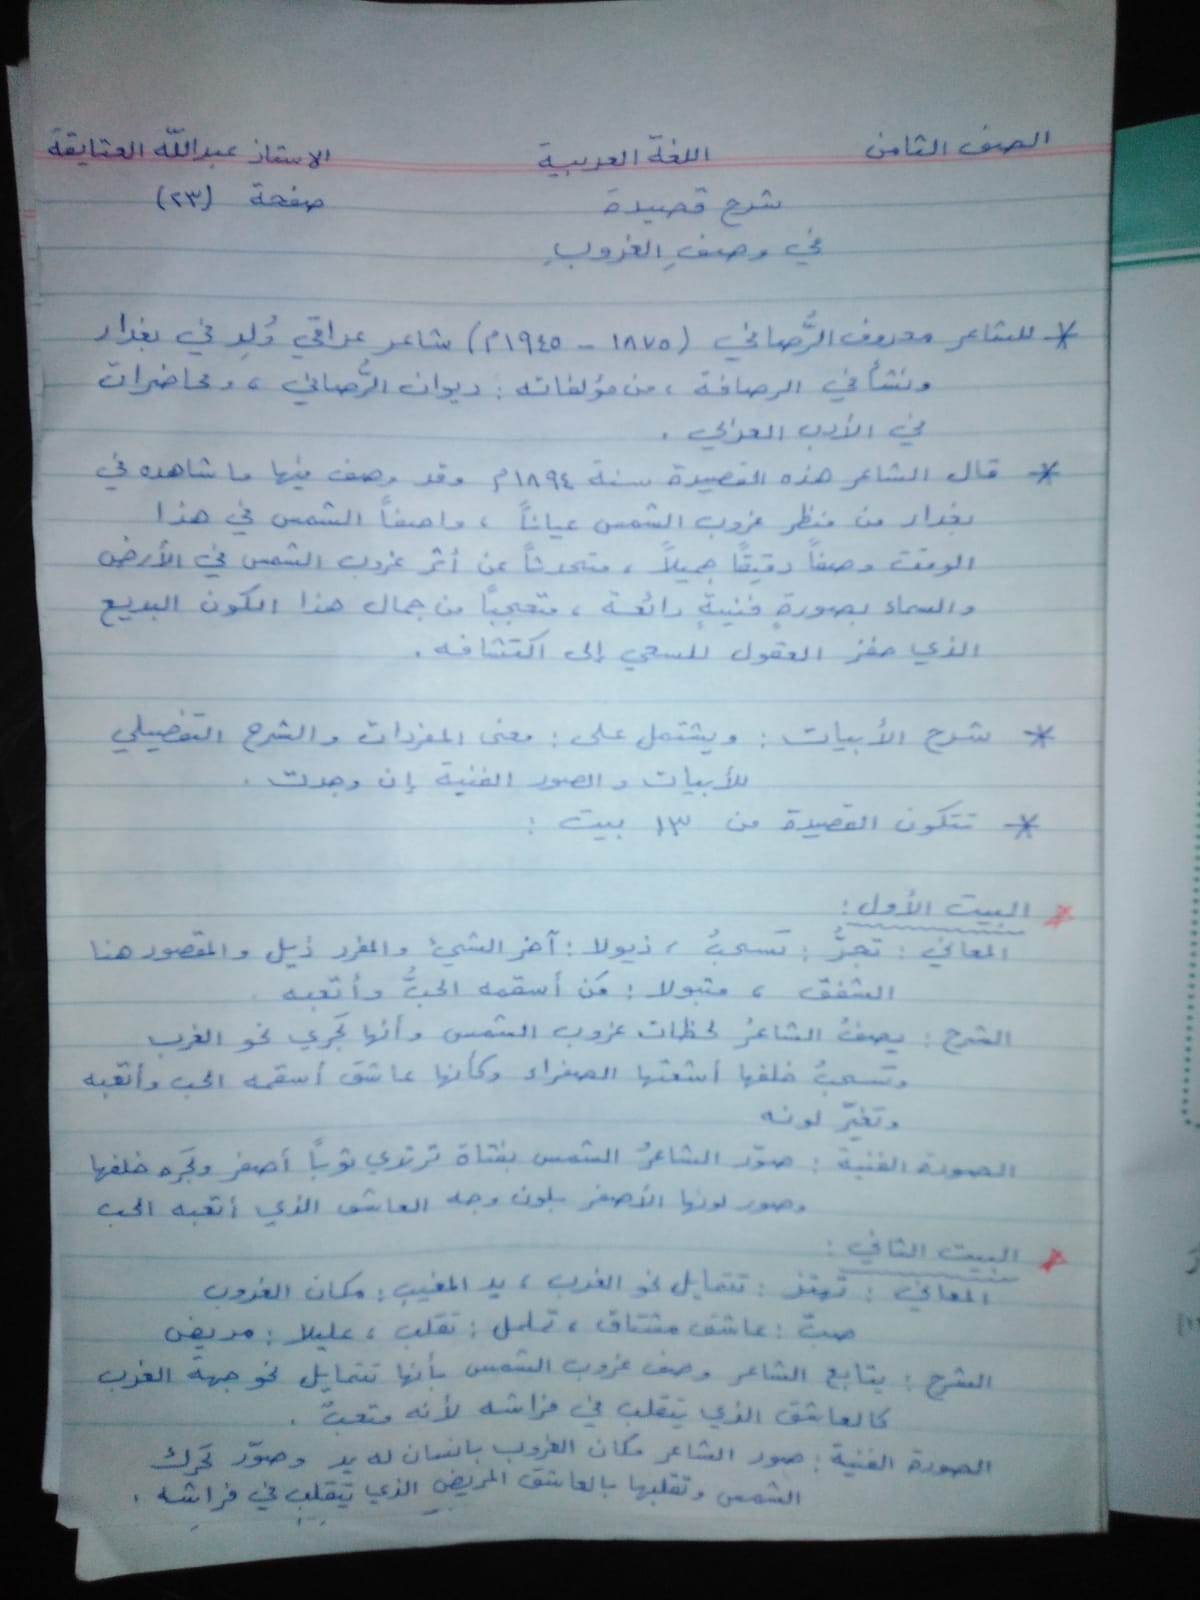 الصف الثامن اللغة العربية الاستاذ عبدالله العتايقة
شرح قصيدة صفحة (٢٣)
في وصفِ الغروبِ
* للشاعر معروف الرُّصافي (١٨٧٥ - ١٩٤٥م) شاعر عراقي وُلِد في بغداد
ونشأ في الرصافة ، من مؤلفاته : ديوان الرُّصافي ، ومحاضرات
في الأدب العربي .
* قال الشاعر هذه القصيدة سنة ١٨٩٤م وقد وصف فيها ما شاهده في
بغداد من منظر غروب الشمس عياناً ، واصفاً الشمس في هذا
الوقت وصفاً دقيقاً جميلاً ، متحدثاً عن أثر غروب الشمس في الأرض
والسماء بصورةٍ فنيةٍ رائعة ، متعجباً من جمال هذا الكون البديع
الذي حفز العقول للسعي إلى اكتشافه .
* شرح الأبيات : ويشتمل على : معنى المفردات والشرح التفصيلي
للأبيات والصور الفنية إن وجدت .
* تتكون القصيدة من ١٣ بيت :
* البيت الأول :
المعاني : تجرُّ : تسحبُ ، ذيولا : آخر الشيء والمفرد ذيل والمقصور هنا
الشفق ، متبولا : مَن أسقمه الحبُّ وأتعبه .
الشرح : يصفُ الشاعرُ لحظات غروب الشمس وأنها تجري نحو الغرب
وتسحبُ خلفها أشعتها الصفراء وكأنها عاشق أسقمه الحب وأتعبه
وتغيّر لونه
الصورة الفنية : صوّر الشاعرُ الشمس بفتاة ترتدي ثوباً أصفر وتجره خلفها
وصور لونها الأصفر بلون وجه العاشق الذي أتعبه الحب
* البيت الثاني :
المعاني : تهتز : تتمايل نحو الغرب ، يد المغيب : مكان الغروب
صبّ : عاشق مشتاق ، تململ : تقلب ، عليلا : مريض
الشرح : يتابع الشاعر وصف غروب الشمس بأنها تتمايل نحو جهة الغرب
كالعاشق الذي يتقلب في فراشه لأنه متعبٌ .
الصورة الفنية : صور الشاعر مكان الغروب بانسان له يد وصوّر تحرك
الشمس وتقلبها بالعاشق المريض الذي يتقلب في فراشه .